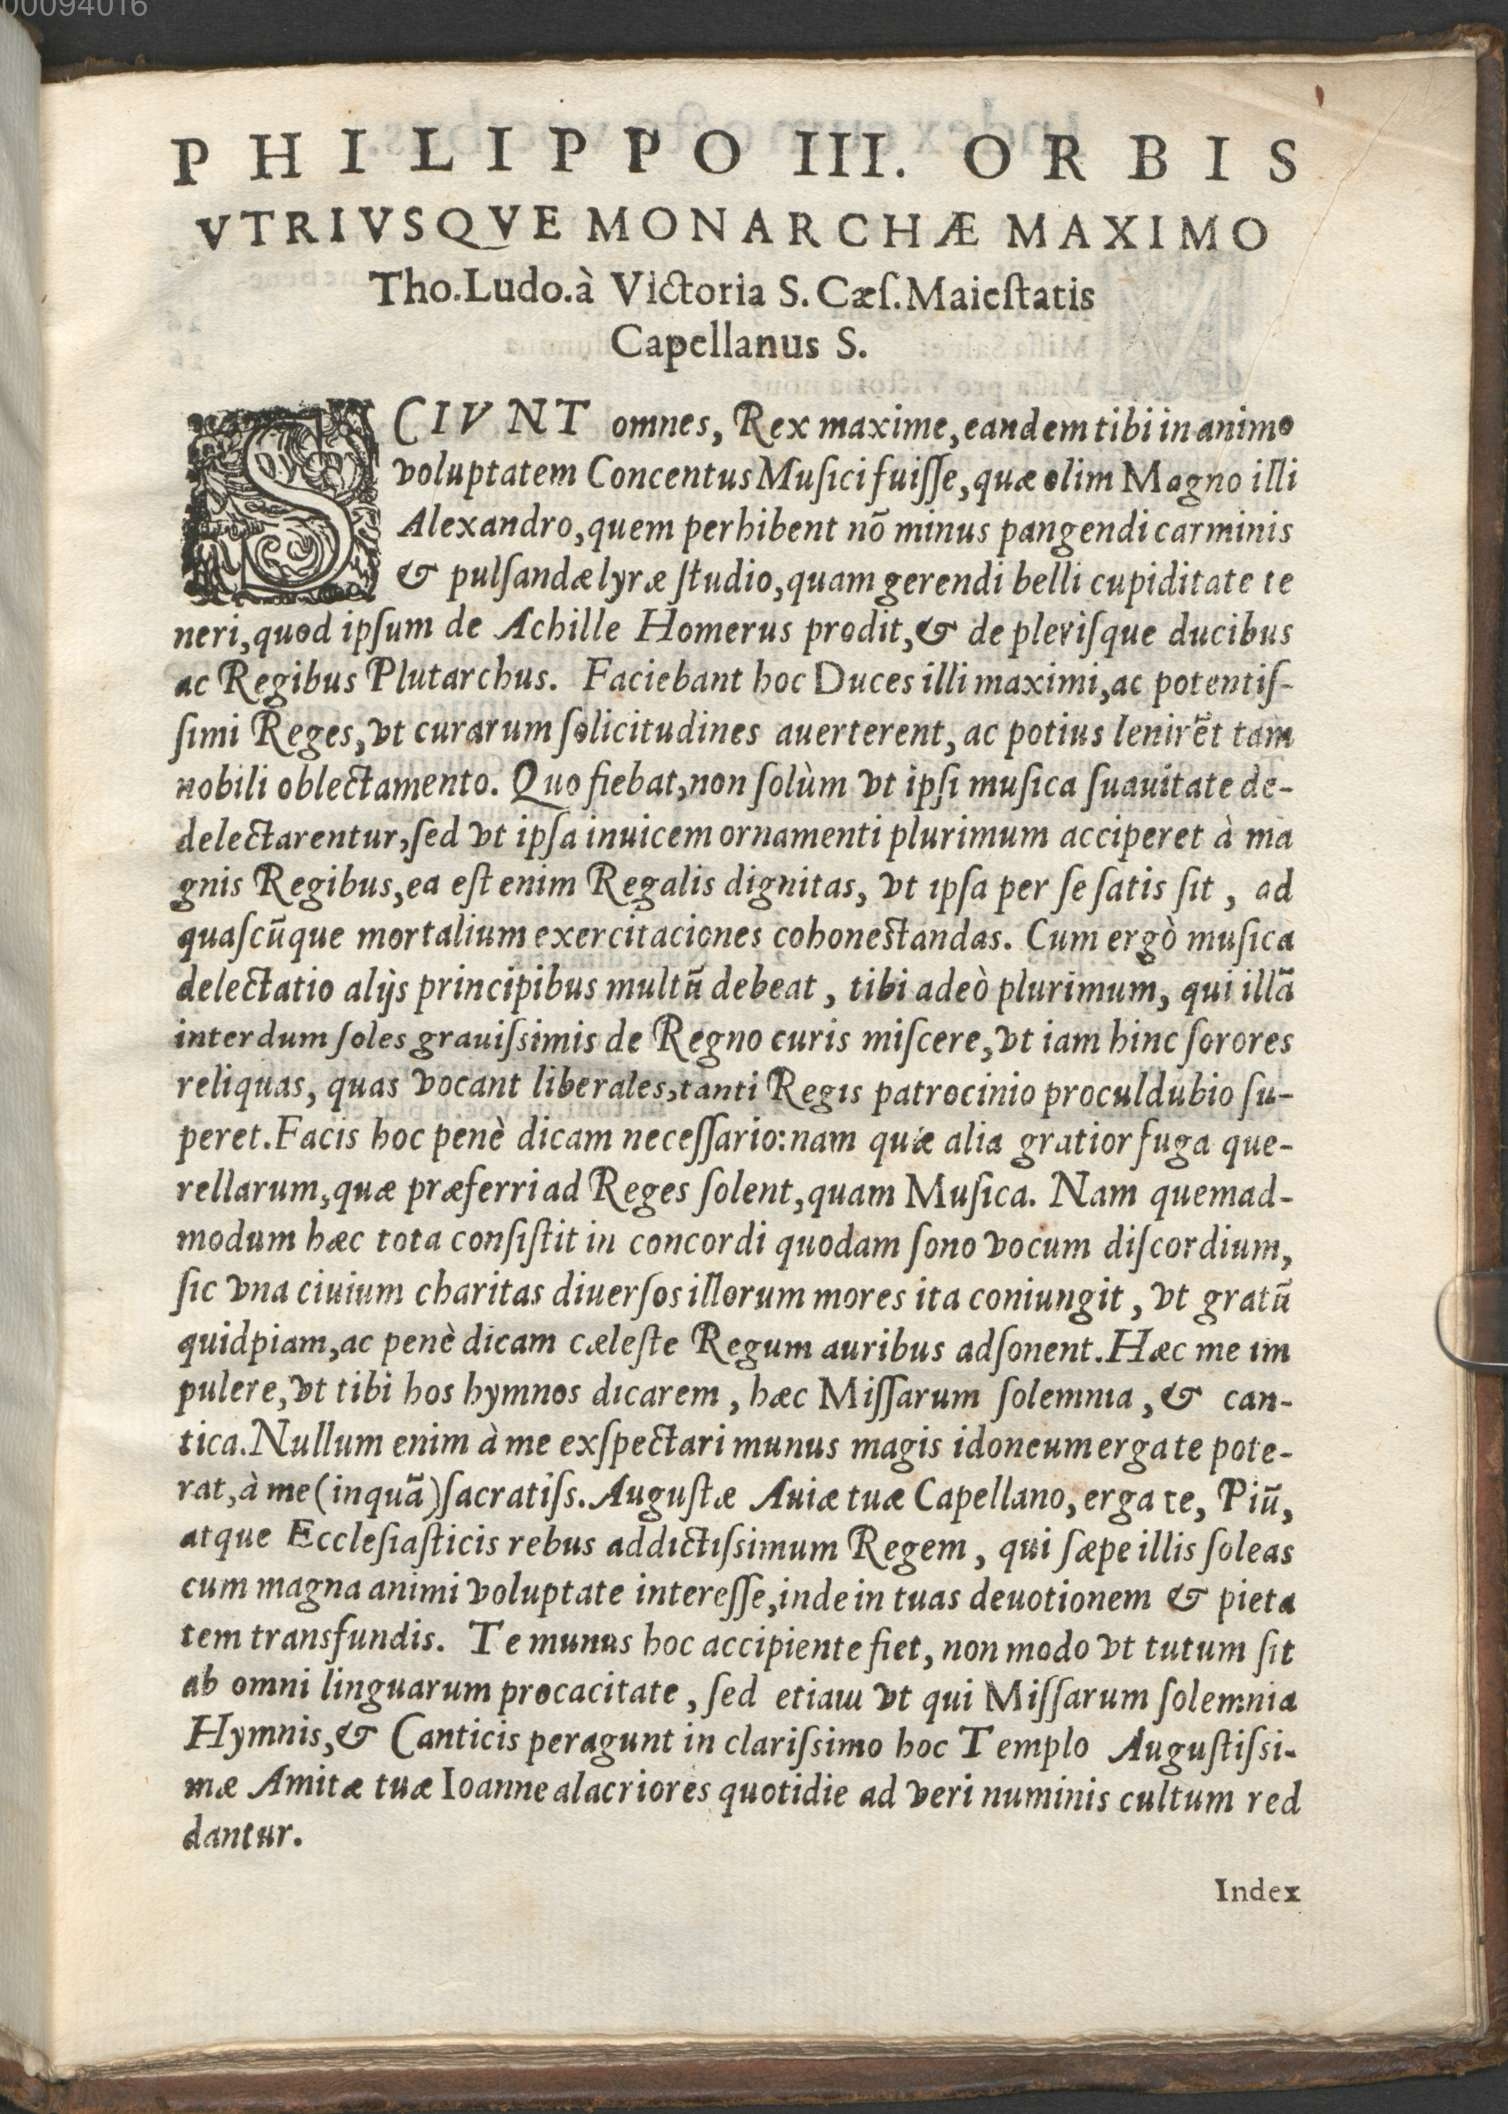 00094016
PHILIPPO III. ORBIS
VTRIVSQVE MONARCHÆ MAXIMO
Tho. Ludo. à Victoria S. Cæſ. Maieſtatis
Capellanus S.
SCIVNT omnes, Rex maxime, eandem tibi in animo
voluptatem Concentus Muſici fuiſſe, quæ olim Magno illi
Alexandro, quem perhibent nõ minus pangendi carminis
& pulſandæ lyræ ſtudio, quam gerendi belli cupiditate te
neri, quod ipſum de Achille Homerus prodit, & de pleriſque ducibus
ac Regibus Plutarchus. Faciebant hoc Duces illi maximi, ac potentiſ-
ſimi Reges, vt curarum ſolicitudines auerterent, ac potius lenirẽt tam
nobili oblectamento. Quo fiebat, non ſolùm vt ipſi muſica ſuauitate de-
delectarentur, ſed vt ipſa inuicem ornamenti plurimum acciperet à ma
gnis Regibus, ea eſt enim Regalis dignitas, vt ipſa per ſe ſatis ſit, ad
quaſcũque mortalium exercitaciones cohoneſtandas. Cum ergò muſica
delectatio alijs principibus multũ debeat, tibi adeò plurimum, qui illã
interdum ſoles grauiſsimis de Regno curis miſcere, vt iam hinc ſorores
reliquas, quas vocant liberales, tanti Regis patrocinio proculdubio ſu-
peret. Facis hoc penè dicam neceſſario: nam quæ alia gratior fuga que-
rellarum, quæ præferri ad Reges ſolent, quam Muſica. Nam quemad-
modum hæc tota conſiſtit in concordi quodam ſono vocum diſcordium,
ſic vna ciuium charitas diuerſos illorum mores ita coniungit, vt gratũ
quidpiam, ac penè dicam cæleſte Regum auribus adſonent. Hæc me im
pulere, vt tibi hos hymnos dicarem, hæc Miſſarum ſolemnia, & can-
tica. Nullum enim à me exſpectari munus magis idoneum erga te pote-
rat, à me (inquã) ſacratiſs. Auguſtæ Auiæ tuæ Capellano, erga te, Piũ,
atque Eccleſiaſticis rebus addictiſsimum Regem, qui ſæpe illis ſoleas
cum magna animi voluptate intereſſe, inde in tuas deuotionem & pieta
tem transfundis. Te munus hoc accipiente fiet, non modo vt tutum ſit
ab omni linguarum procacitate, ſed etiam vt qui Miſſarum ſolemnia
Hymnis, & Canticis peragunt in clariſsimo hoc Templo Auguſtiſsi-
mæ Amitæ tuæ Ioanne alacriores quotidie ad veri numinis cultum red
dantur.
Index